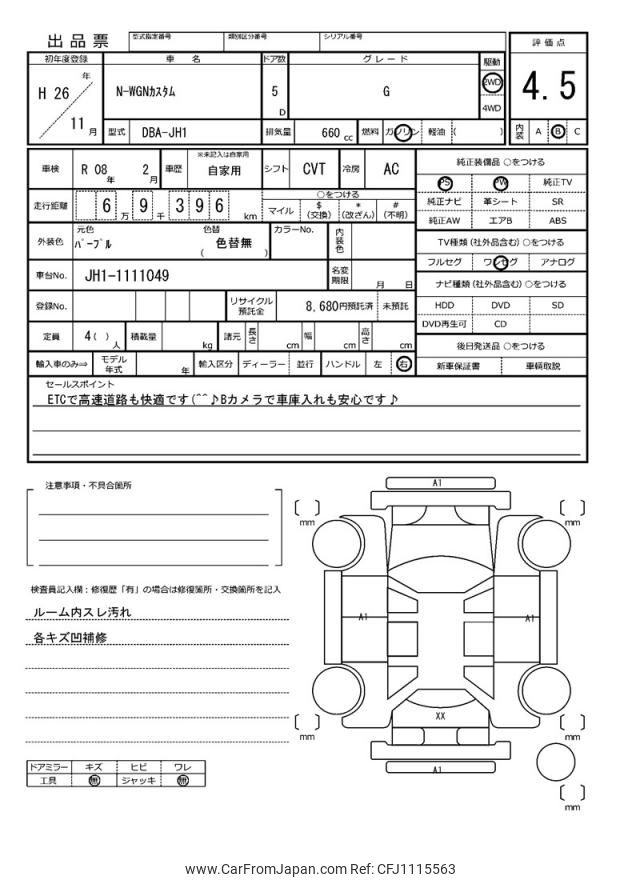 出品票
型式指定番号 類別区分番号 シリアル番号
評価点
初年度登録 車名 ドア数 グレード 駆動
H 26 年 N-WGNカスタム 5 D G 2WD 4.5
4WD
11 月 型式 DBA-JH1 排気量 660 cc 燃料 ガソリン 軽油 ( ) 内装 A B C
車検 R 08 年 2 月 車歴 ※未記入は自家用 自家用 シフト CVT 冷房 AC 純正装備品 ○をつける
PS PW 純正TV
走行距離 6 万 9 千 3 9 6 km ○をつける 純正ナビ 革シート SR
マイル $ (交換) * (改ざん) # (不明) 純正AW エアB ABS
外装色 元色 パープル 色替 色替無 ( ) カラーNo. 内装色 TV種類(社外品含む)○をつける
フルセグ ワンセグ アナログ
車台No. JH1-1111049 名変期限 月 日 ナビ種類(社外品含む)○をつける
登録No. リサイクル預託金 8,680円預託済 未預託 HDD DVD SD
DVD再生可 CD
定員 4( ) 人 積載量 kg 諸元 長さ cm 幅 cm 高さ cm 後日発送品 ○をつける
輸入車のみ⇒ モデル年式 年 輸入区分 ディーラー 並行 ハンドル 左 右 新車保証書 車輌取説
セールスポイント
ETCで高速道路も快適です(^^♪Bカメラで車庫入れも安心です♪
注意事項・不具合箇所
A1
mm mm
検査員記入欄:修復歴「有」の場合は修復箇所・交換箇所を記入
ルーム内スレ汚れ
A1 A1
各キズ凹補修
XX
mm mm
A1
ドアミラー キズ ヒビ ワレ
工具 無 ジャッキ 無
mm
www.CarFromJapan.com Ref: CFJ1115563